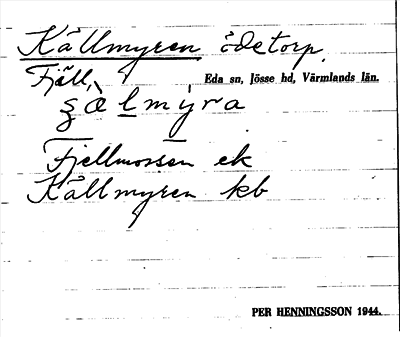 Källmyren ödetorp
Fjäll, Eda sn, Jösse hd, Värmlands län.
Fjellmossen ek
Källmyren kb
PER HENNINGSSON 1944.